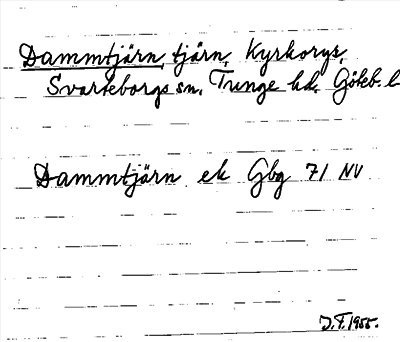 Dammtjärn, tjärn, Kyrkorys,
Svarteborgs sn, Tunge hd. Göteb. l
Dammtjärn ek Gbg 71 NV
J.F. 1955.